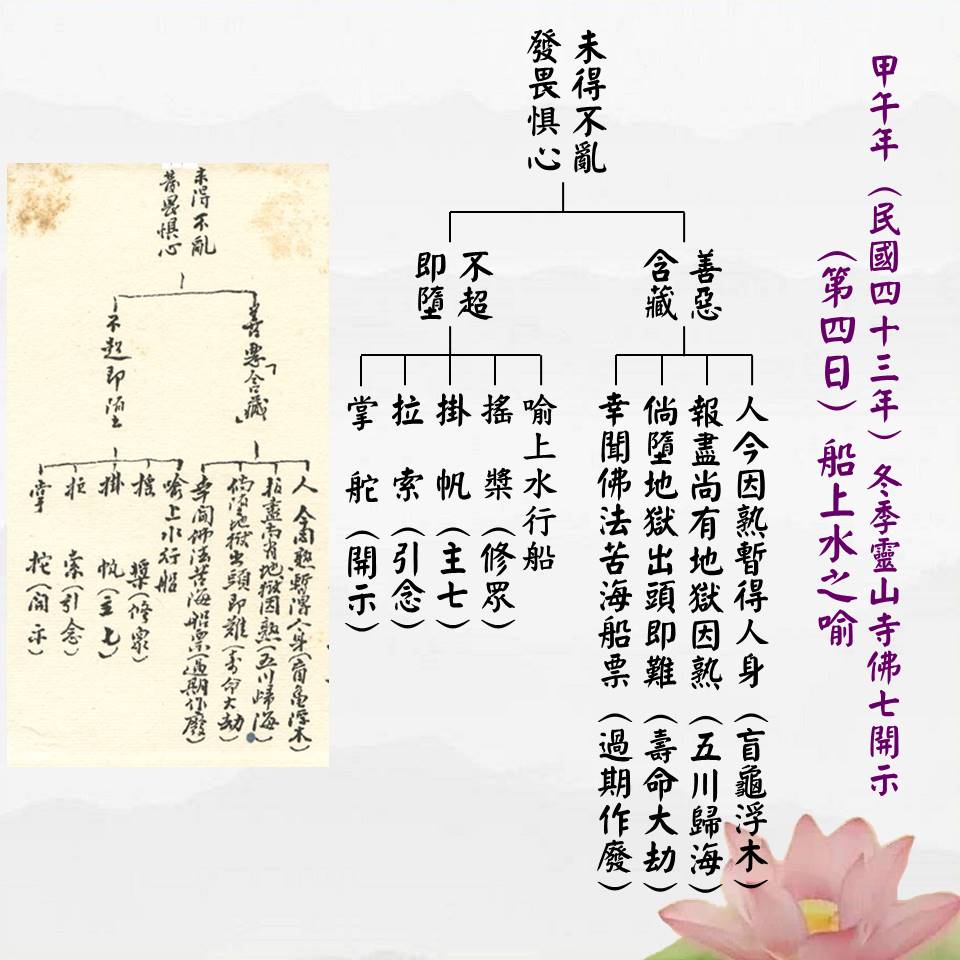 甲午年（民國四十三年）冬季靈山寺佛七開示
（第四日）船上水之喻
未得不亂
發畏懼心
善惡
含藏
人今因熟暫得人身（盲龜浮木）
報盡尚有地獄因熟（五川歸海）
倘墮地獄出頭即難（壽命大劫）
幸聞佛法苦海船票（過期作廢）
不超
即墮
喻上水行船
搖　槳（修眾）
掛　帆（主七）
拉　索（引念）
掌　舵（開示）
未得不亂
發畏懼心
善惡「含藏」
人今因熟暫得人身（盲龜浮木）
報盡尚有地獄因熟（五川歸海）
倘墮地獄出頭即難（壽命大劫）
幸聞佛法苦海船票（過期作廢）
不超即墮
喻上水行船
搖　槳（修眾）
掛　帆（主七）
拉　索（引念）
掌　舵（開示）